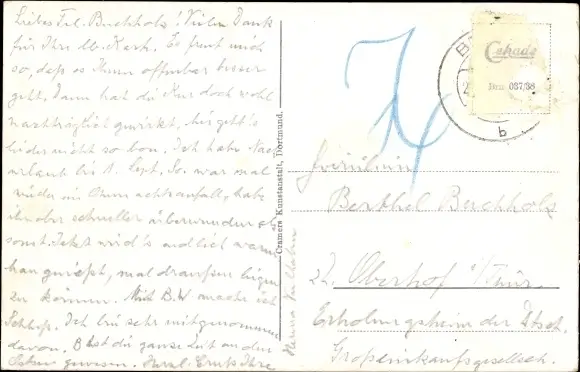 Liebes Frl. Buchholz! Vielen Dank
für Ihre lb. Karte. Es freut mich
so, dass es Ihnen offenbar besser
geht, dann hat die Kur doch wohl
nachträglich gewirkt, hier geht's
leider nicht so
Ich habe
urlaub bis 1. Sept. So. war mal
wieder ein
habe
ihn aber schneller überwunden als
sonst. Jetzt wird's endlich warm
man
mal draussen liegen
zu können. Mit B.W. mache ich
Schluß. Ich bin sehr mitgenommen
davon. Bist du ganze Zeit an der
gewesen. Herzl. Gruß Ihre
Hanna
Cramers Kunstanstalt, Dortmund.
Cekade
037/38
b
Fräulein
Berthel Buchholz
22. Oberhof i/Thür.
Erholungsheim der Dtsch.
Großeinkaufsgesellsch.